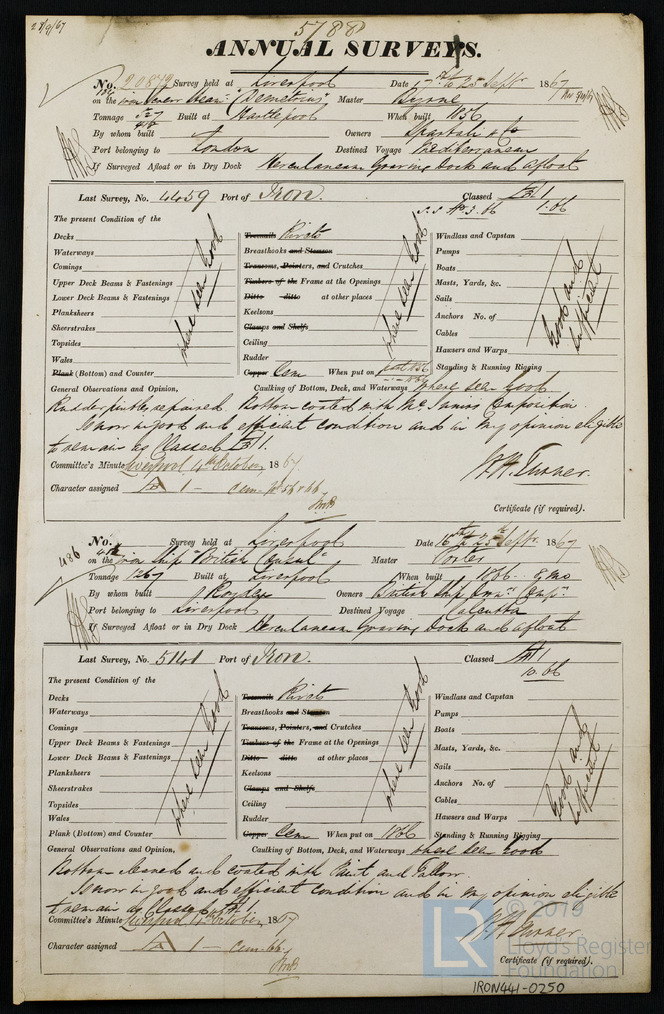 5788
ANNUAL SURVEYS.
No. 20872 Survey held at Liverpool Date 17th to 25 Septr. 1867
on the iron Screw Steamr "Demetrius" Master Byrne
Tonnage 527 Built at Hartlepool When built 1856
By whom built Owners Spartali & Co
Port belonging to London Destined Voyage Mediterranean
If Surveyed Afloat or in Dry Dock Herculanean Graving Dock and afloat
Last Survey, No. 44059 Port of Iron. Classed A 1
S.S No. 3. 66 1.66
The present Condition of the
Decks
Waterways
Comings
Upper Deck Beams & Fastenings
Lower Deck Beams & Fastenings
Planksheers
Sheerstrakes
Topsides
Wales
Plank (Bottom) and Counter
where seen Good
Treenails Rivets
Breasthooks and Stemson
Transons, Pointers, and Crutches
Timbers of the Frame at the Openings
Ditto ditto at other places
Keelsons
Clamps and Shelfs
Ceiling
Rudder
Copper Cem When put on
where seen Good
Windlass and Capstan
Pumps
Boats
Masts, Yards, &c.
Sails
Anchors No. of
Cables
Hawsers and Warps
Standing & Running Rigging
Good and sufficient
General Observations and Opinion, Caulking of Bottom, Deck, and Waterways where seen Good
Rudder pintles, repaired. Bottom coated with Mc Innes Composition.
Is now in good and efficient condition and in my opinion eligible
to remain as Classed A 1.
Committee's Minute Liverpool 4th October 1867
Character assigned A 1 –
W. H. Turner.
Certificate (if required).
No. Survey held at Liverpool Date 16th to 25th Septr. 1867
486
on the iron Ship "British Consul" Master Porter
Tonnage 1267 Built at Liverpool When built 1866. 9 mo
By whom built Royden Owners British Ship Ownrs Compy.
Port belonging to Liverpool Destined Voyage Calcutta
If Surveyed Afloat or in Dry Dock Herculanean Graving Dock and afloat
Last Survey, No. 5141 Port of Iron. Classed A 1
10.66
The present Condition of the
Decks
Waterways
Comings
Upper Deck Beams & Fastenings
Lower Deck Beams & Fastenings
Planksheers
Sheerstrakes
Topsides
Wales
Plank (Bottom) and Counter
where seen Good
Treenails Rivets
Breasthooks and Stemson
Transons, Pointers, and Crutches
Timbers of the Frame at the Openings
Ditto ditto at other places
Keelsons
Clamps and Shelfs
Ceiling
Rudder
Copper Cem When put on 1866
where seen Good
Windlass and Capstan
Pumps
Boats
Masts, Yards, &c.
Sails
Anchors No. of
Cables
Hawsers and Warps
Standing & Running Rigging
Good and sufficient
General Observations and Opinion, Caulking of Bottom, Deck, and Waterways where seen Good
Bottom cleaned and coated with Paint and Tallow.
Is now in good and efficient condition and in my opinion eligible
to remain as Classed A 1.
Committee's Minute Liverpool 4th October 1867
Character assigned A 1 – Cem. 66.
W. H. Turner.
Certificate (if required).
LR © 2019
Lloyd's Register
Foundation
IRON441-0250